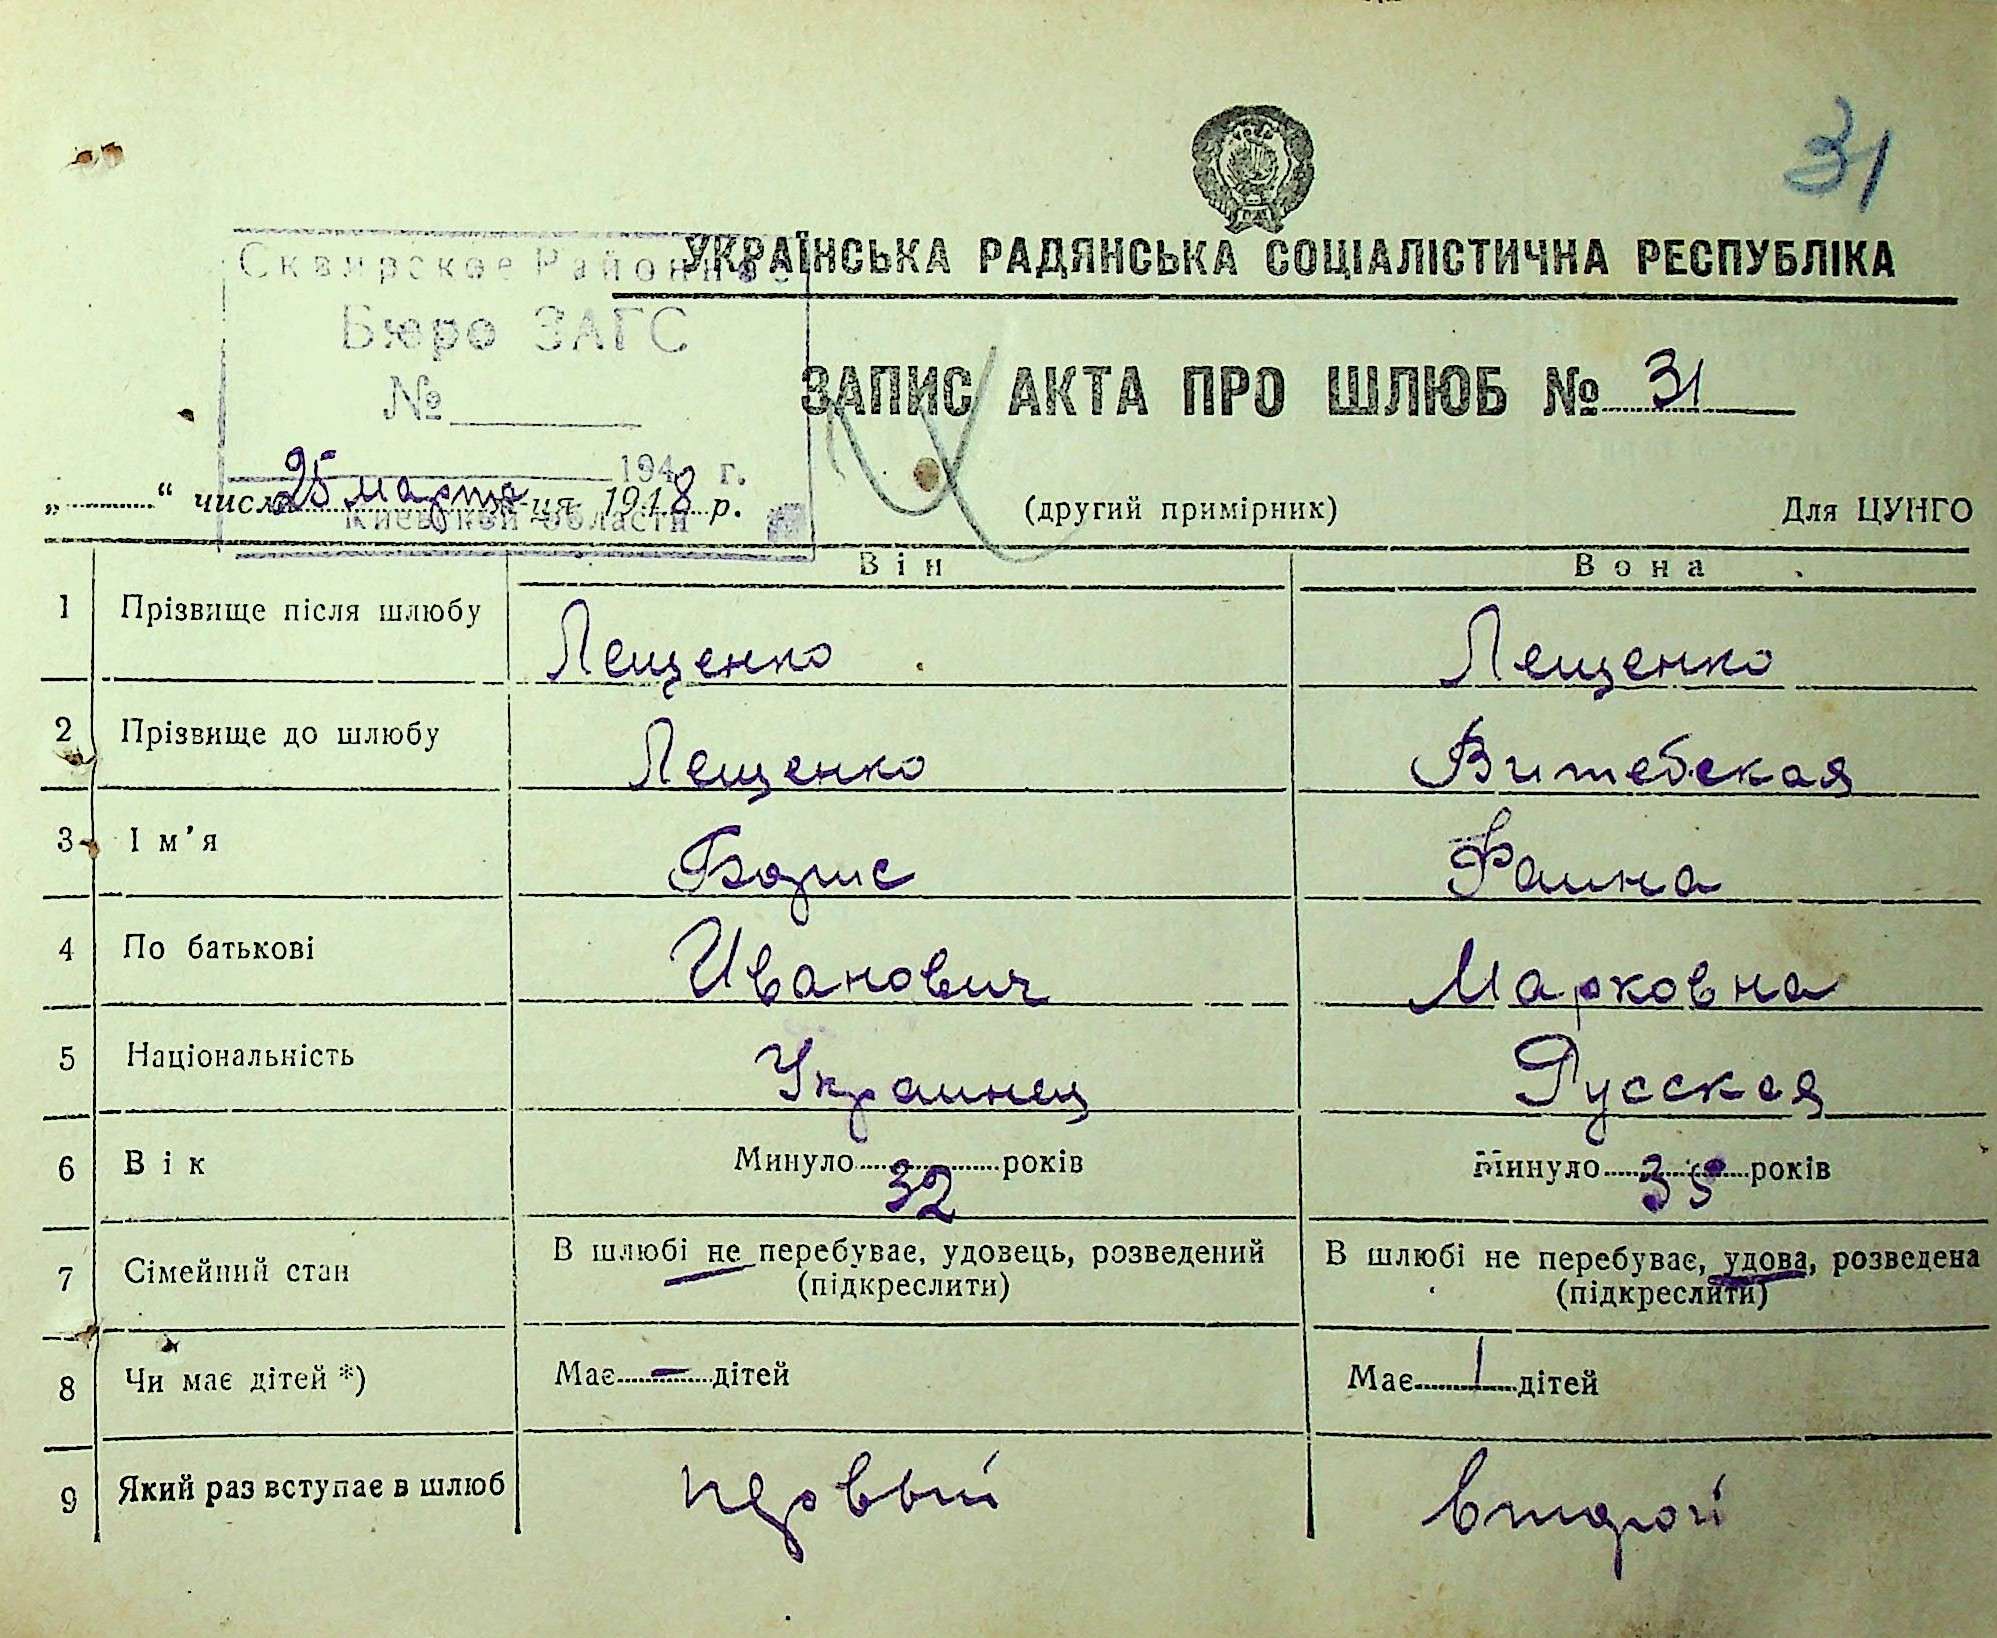 31
УКРАЇНСЬКА РАДЯНСЬКА СОЦІАЛІСТИЧНА РЕСПУБЛІКА
Сквирское Районное
Бюро ЗАГС
№
194 г.
Киевской области
ЗАПИС АКТА ПРО ШЛЮБ № 31
„ “ числа 25 марта м-ця 1948 р.
(другий примірник)
Для ЦУНГО
Він Вона
1 Прізвище після шлюбу Лещенко Лещенко
2 Прізвище до шлюбу Лещенко Витебская
3 Ім’я Борис Фаина
4 По батькові Иванович Марковна
5 Національність Украинец Русская
6 Вік Минуло 32 років Минуло 35 років
7 Сімейний стан В шлюбі не перебуває, удовець, розведений В шлюбі не перебуває, удова, розведена
(підкреслити) (підкреслити)
8 Чи має дітей *) Має – дітей Має 1 дітей
9 Який раз вступає в шлюб первый второй